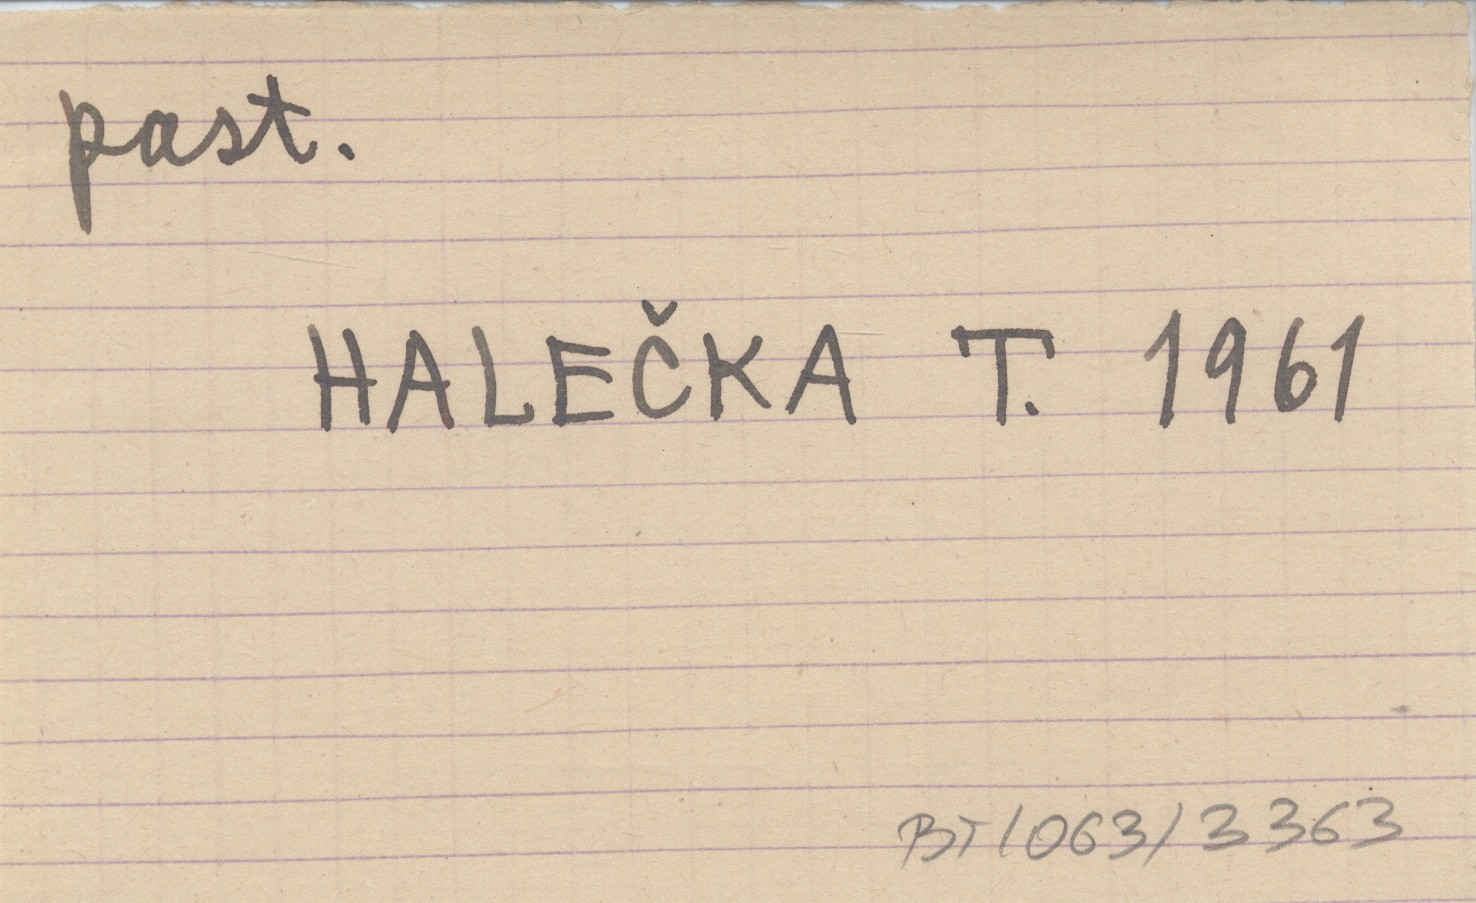 past.
HALEČKA T. 1961
BT/063/3363